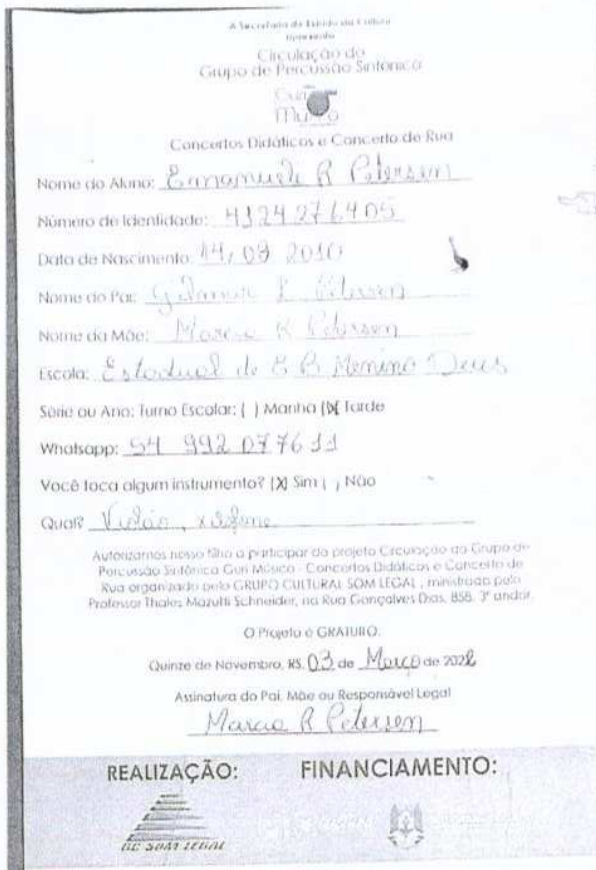 A Secretaria de Estado da Cultura
apresenta
Circulação do
Grupo de Percussão Sinfônica
Guri
Músico
Concertos Didáticos e Concerto de Rua
Nome do Aluno: Emanuele R Petersen
Número de Identidade: 4124276405
Data de Nascimento: 14/09 2010
Nome do Pai: R Petersen
Nome da Mãe: Marcia R Petersen
Escola: Estadual de E B Menino Deus
Série ou Ano: Turno Escolar: ( ) Manhã (X) Tarde
Whatsapp: 54 992077611
Você toca algum instrumento? (X) Sim ( ) Não
Qual? Violão, xilofone
Autorizamos nosso filho a participar do projeto Circulação do Grupo de
Percussão Sinfônica Guri Músico - Concertos Didáticos e Concerto de
Rua organizado pelo GRUPO CULTURAL SOM LEGAL, ministrado pelo
Professor Thales Mazutti Schneider, na Rua Gonçalves Dias, 858, 3º andar.
O Projeto é GRATUITO.
Quinze de Novembro, RS, 03 de Março de 2022
Assinatura do Pai, Mãe ou Responsável Legal
Marcia R Petersen
REALIZAÇÃO: FINANCIAMENTO:
GC SOM LEGAL